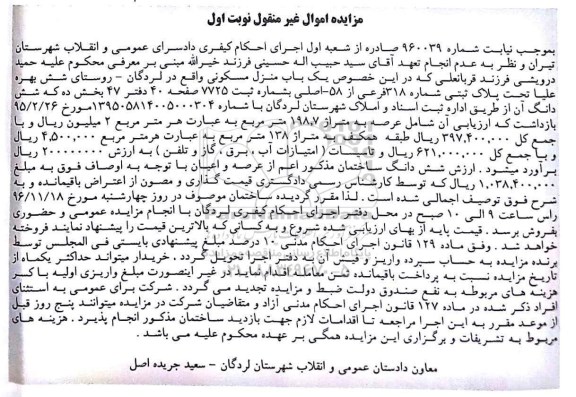 مزایده اموال غیر منقول نوبت اول
بموجب نیابت شماره ۹۶۰۰۳۹ صادره از شعبه اول اجرای احکام کیفری دادسرای عمومی و انقلاب شهرستان
تیران و نظر به عدم انجام تعهد آقای سید حبیب اله حسینی فرزند خیرالله مبنی بر معرفی محکوم علیه حمید
درویشی فرزند قربانعلی که در این خصوص یک باب منزل مسکونی واقع در لردگان - روستای شش بهره
علیا تحت پلاک ثبتی شماره ۳۱۸فرعی از ۵۸-اصلی بشماره ثبت ۷۷۲۵ صفحه ۴۰ دفتر ۴۷ بخش ده که شش
دانگ آن از طریق اداره ثبت اسناد و املاک شهرستان لردگان با شماره ۱۳۹۵۰۵۸۱۴۰۰۵۰۰۰۳۰۴مورخ ۹۵/۲/۲۶
بازداشت که ارزیابی آن شامل عرصه به متراژ ۱۹۸/۷ متر مربع به عبارت هر متر مربع ۲ میلیون ریال و با
جمع کل ۳۹۷,۴۰۰,۰۰۰ ریال طبقه همکف به متراژ ۱۳۸ متر مربع به عبارت هرمتر مربع ۴,۵۰۰,۰۰۰ ریال
و با جمع کل ۶۲۱,۰۰۰,۰۰۰ ریال و تاسیسات ( امتیازات آب ، برق ، گاز و تلفن ) به ارزش ۲۰۰۰۰۰۰۰ ریال
برآورد میشود . ارزش شش دانگ ساختمان مذکور اعم از عرصه و اعیان با توجه به اوصاف فوق به مبلغ
۱,۰۳۸,۴۰۰,۰۰۰ ریال که توسط کارشناس رسمی دادگستری قیمت گذاری و مصون از اعتراض باقیمانده و به
شرح فوق توصیف اجمالی شده است . لذا مقرر گردیده ساختمان موصوف در روز چهارشنبه مورخ ۹۶/۱۱/۱۸
راس ساعت ۹ الی ۱۰ صبح در محل دفتر اجرای احکام کیفری لردگان با انجام مزایده عمومی و حضوری
بفروش برسد . قیمت پایه از بهای ارزیابی شده شروع و به کسانی که بالاترین قیمت را پیشنهاد نمایند فروخته
خواهد شد . وفق ماده ۱۲۹ قانون اجرای احکام مدنی ۱۰ درصد مبلغ پیشنهادی بایستی فی المجلس توسط
برنده مزایده به حساب سپرده واریز و فیش آن به دفتر اجرا تحویل گردد . خریدار میتواند حداکثر یکماه از
تاریخ مزایده نسبت به پرداخت باقیمانده ثمن معامله اقدام نماید در غیر اینصورت مبلغ واریزی اولیه با کسر
هزینه های مربوطه به نفع صندوق دولت ضبط و مزایده تجدید می گردد . شرکت برای عمومی به استثنای
افراد ذکر شده در ماده ۱۲۷ قانون اجرای احکام مدنی آزاد و متقاضیان شرکت در مزایده میتوانند پنج روز قبل
از موعد مقرر به این اجرا مراجعه تا اقدامات لازم جهت بازدید ساختمان مذکور انجام پذیرد . هزینه های
مربوط به تشریفات و برگزاری این مزایده همگی بر عهده محکوم علیه می باشد .
معاون دادستان عمومی و انقلاب شهرستان لردگان - سعید جریده اصل